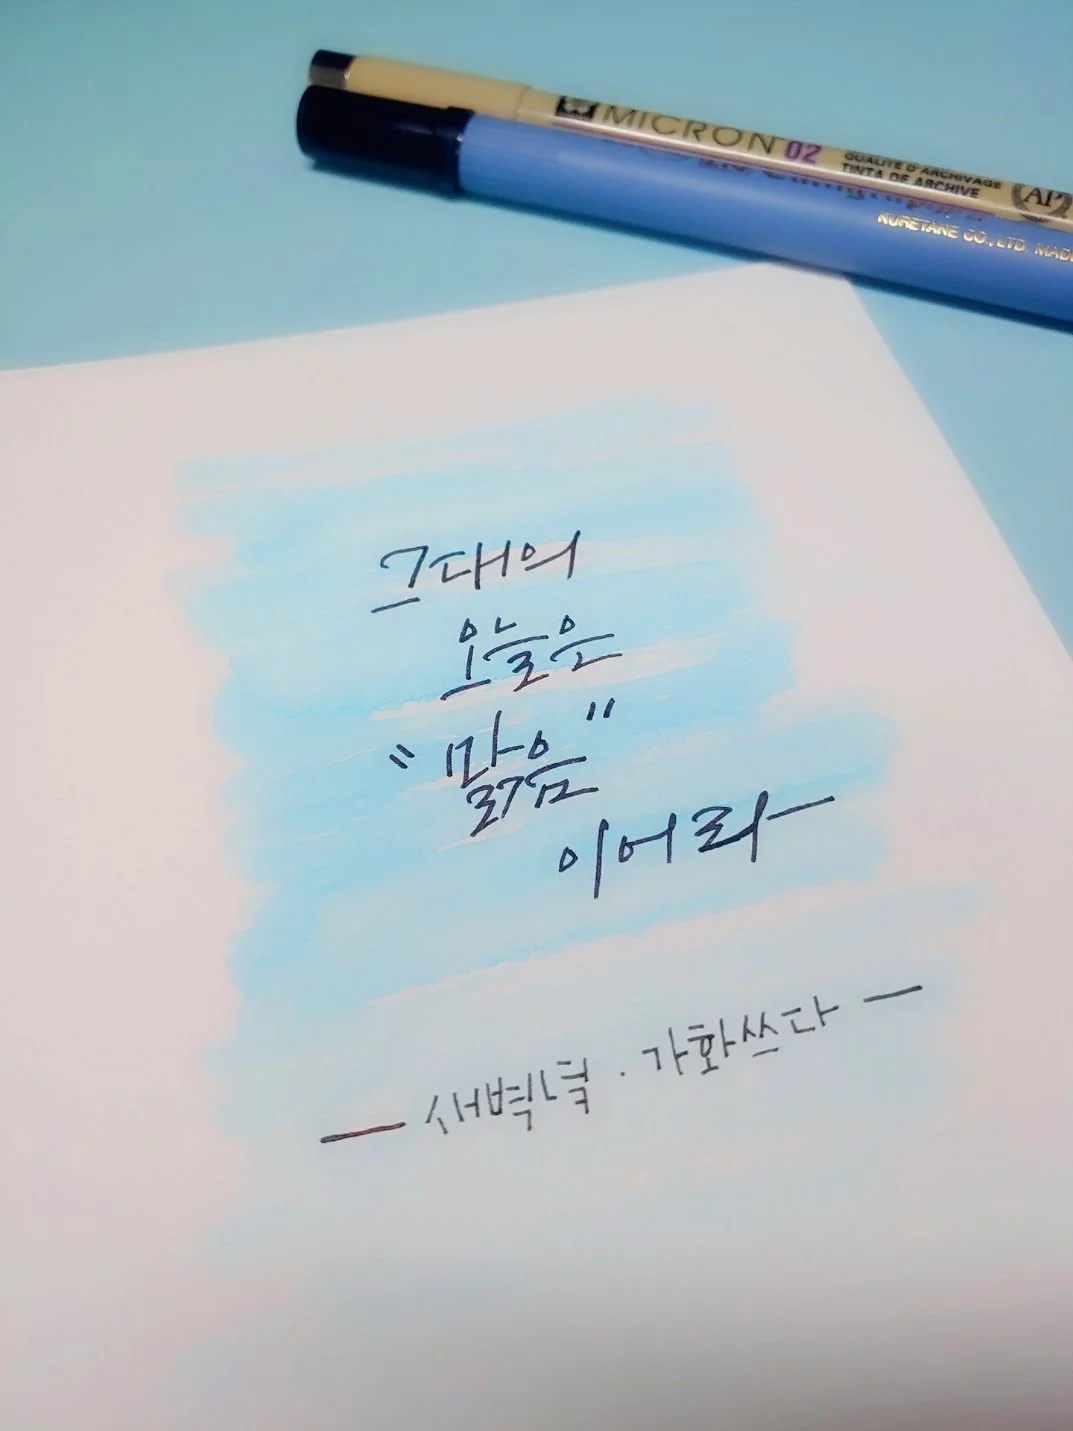 MICRON 02
QUALITÉ D'ARCHIVAGE
TINTA DE ARCHIVE
AP
KURETAKE CO., LTD MADE
그대의
오늘은
"맑음"
이어라
가화쓰다